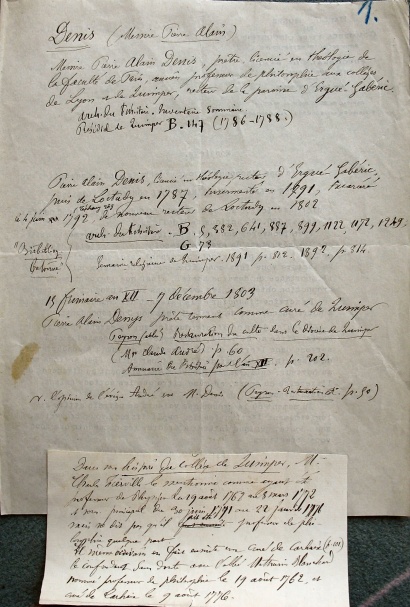 1.
Denis (Messire Pierre Alain)
Messire Pierre Alain Denis, prêtre licencié en théologie de
la faculté de Paris, ancien professeur de philosophie aux collèges
de Lyon et de Quimper, recteur de la paroisse d'Ergué-Gabéric
arch. du Finistère. Inventaire Sommaire
Présidial de Quimper B. 147 (1786-1788.)
Pierre Alain Denis, licencié en théologie recteur d'Ergué Gabéric,
puis de Loctudy en 1787, en 1791,
1792 de nouveau recteur de Loctudy en 1802
arch. du Finistère. B. 8, 382, 641, 887, 899, 1122, 1172, 1249.
G. 78
Semaine religieuse de Quimper. 1891 p. 812. 1892. p. 314
15 frimaire an XII - 7 décembre 1803
Pierre Alain Denys prêtre comme curé de Quimper
Peyron (abbé) Restauration du culte dans le diocèse de Quimper
(Mgr Claude André) p. 60
Annuaire du Finistère pour l'an XII. p. 202.
v. l'opinion de l'évêque André sur M. Denis (Peyron p. 50)
Dans son histoire du Collège de Quimper, M.
Charles Fierville le mentionne comme ayant été
professeur de physique le 19 août 1767 au 8 mars 1772
et sous principal du 30 juin 1771 au 22 janvier 1776
mais ne dit pas qu'il professeur de phi-
losophie quelque part
Il en fait ensuite un curé de Carhaix (p. 111)
le confondant sans doute avec l'abbé Mathurin
nommé professeur de philosophie le 19 août 1762, et
curé de Carhaix le 9 août 1776.